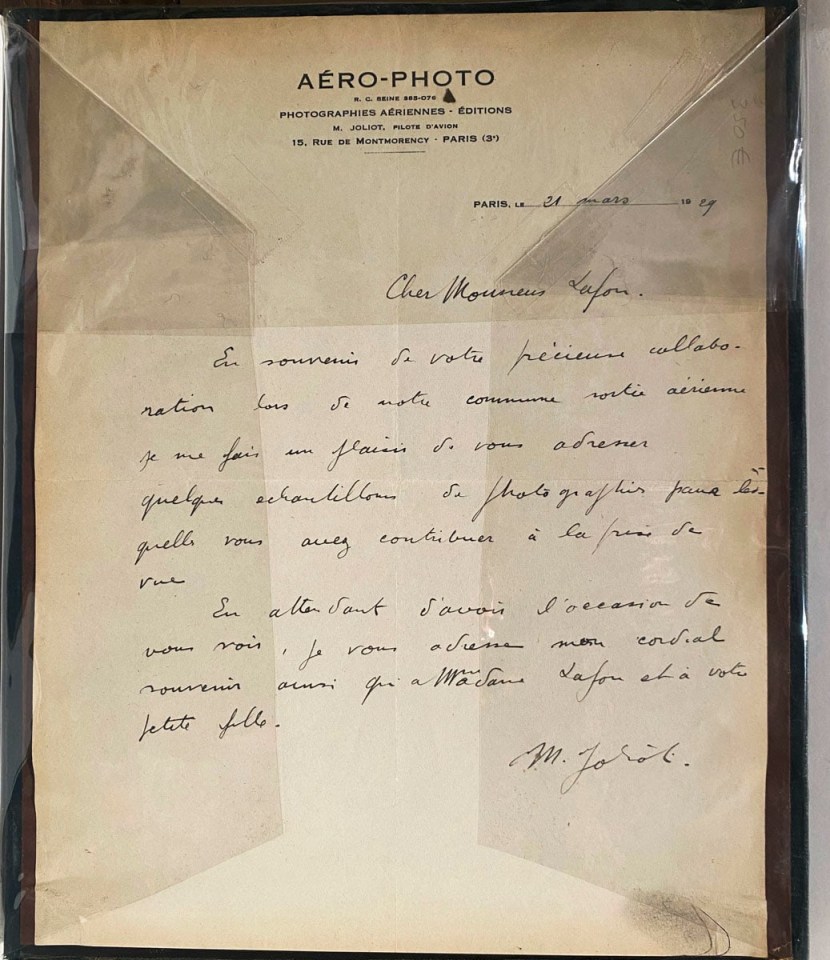 AÉRO-PHOTO
R. C. SEINE 385-076
PHOTOGRAPHIES AÉRIENNES - ÉDITIONS
M. JOLIOT, PILOTE D'AVION
15, RUE DE MONTMORENCY - PARIS (3ᵉ)
350 €
PARIS, LE 21 mars 1929
Cher Monsieur Lafon.
En souvenir de votre précieuse collabo-
ration lors de notre commune sortie aérienne
je me fais un plaisir de vous adresser
quelques echantillons de photographies pour les-
quelle vous avez contribuer à la prise de
vue
En attendant d'avoir l'occasion de
vous voir, je vous adresse mon cordial
souvenir ainsi qu'a Madame Lafon et à votre
petite fille.
M. Joliot.